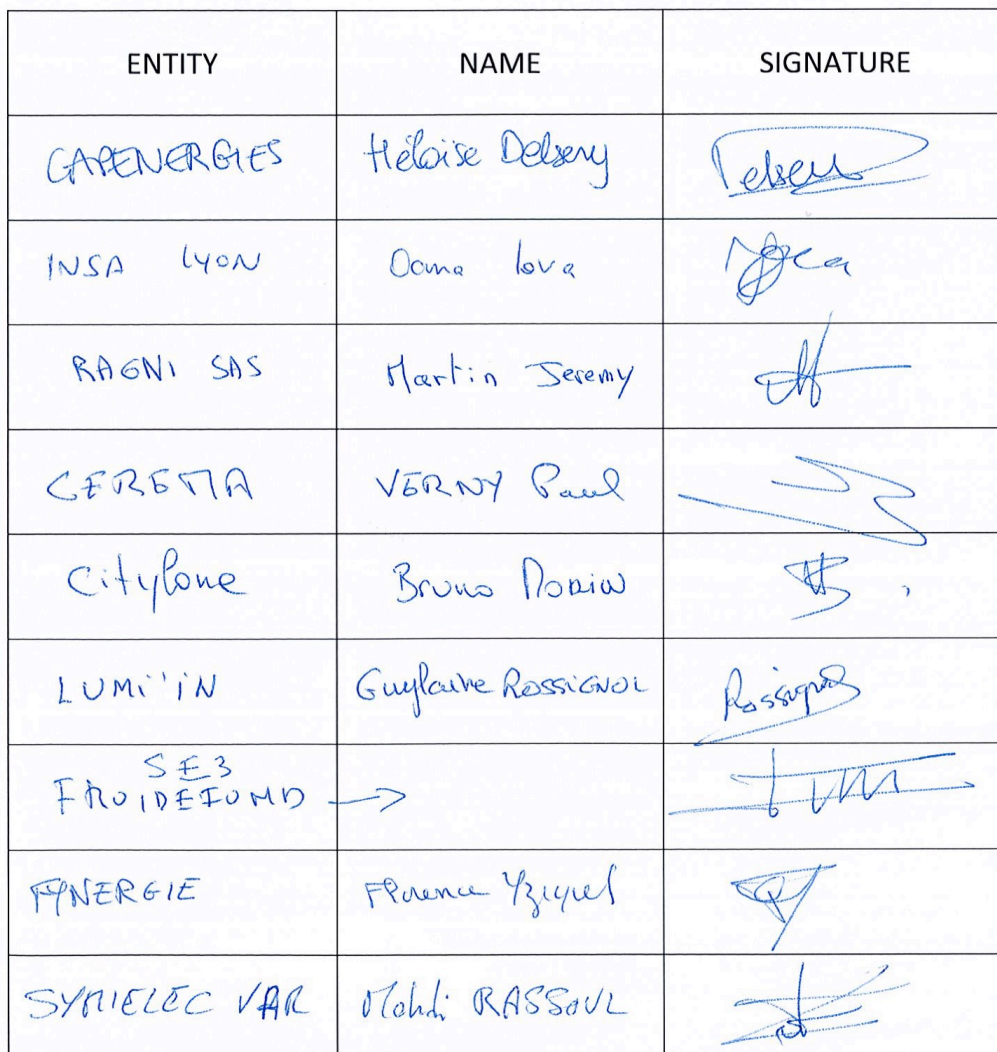 ENTITY NAME SIGNATURE
CAPENERGIES Héloïse Delseny
INSA LYON Oana Iova
RAGNI SAS Martin Jeremy
CEREMA VERNY Paul
Citylone Bruno MORIN
LUMI'IN Guylaine ROSSIGNOL Rossignol
SE3
FROIDEFOND →
FPNERGIE Florence
SYMIELEC VAR Mehdi RASSOUL